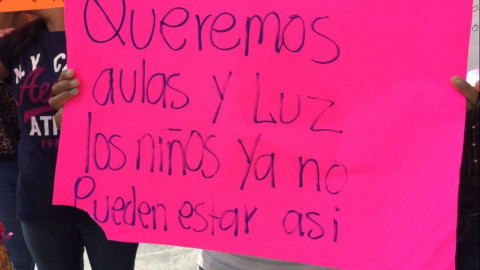 Queremos
aulas y Luz
los niños ya no
Pueden estar asi
N.Y.C
ATL